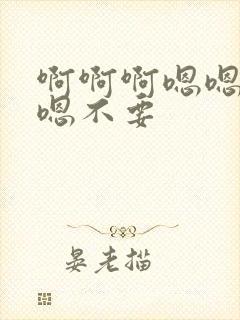 啊啊啊嗯嗯
嗯不要
晏老描